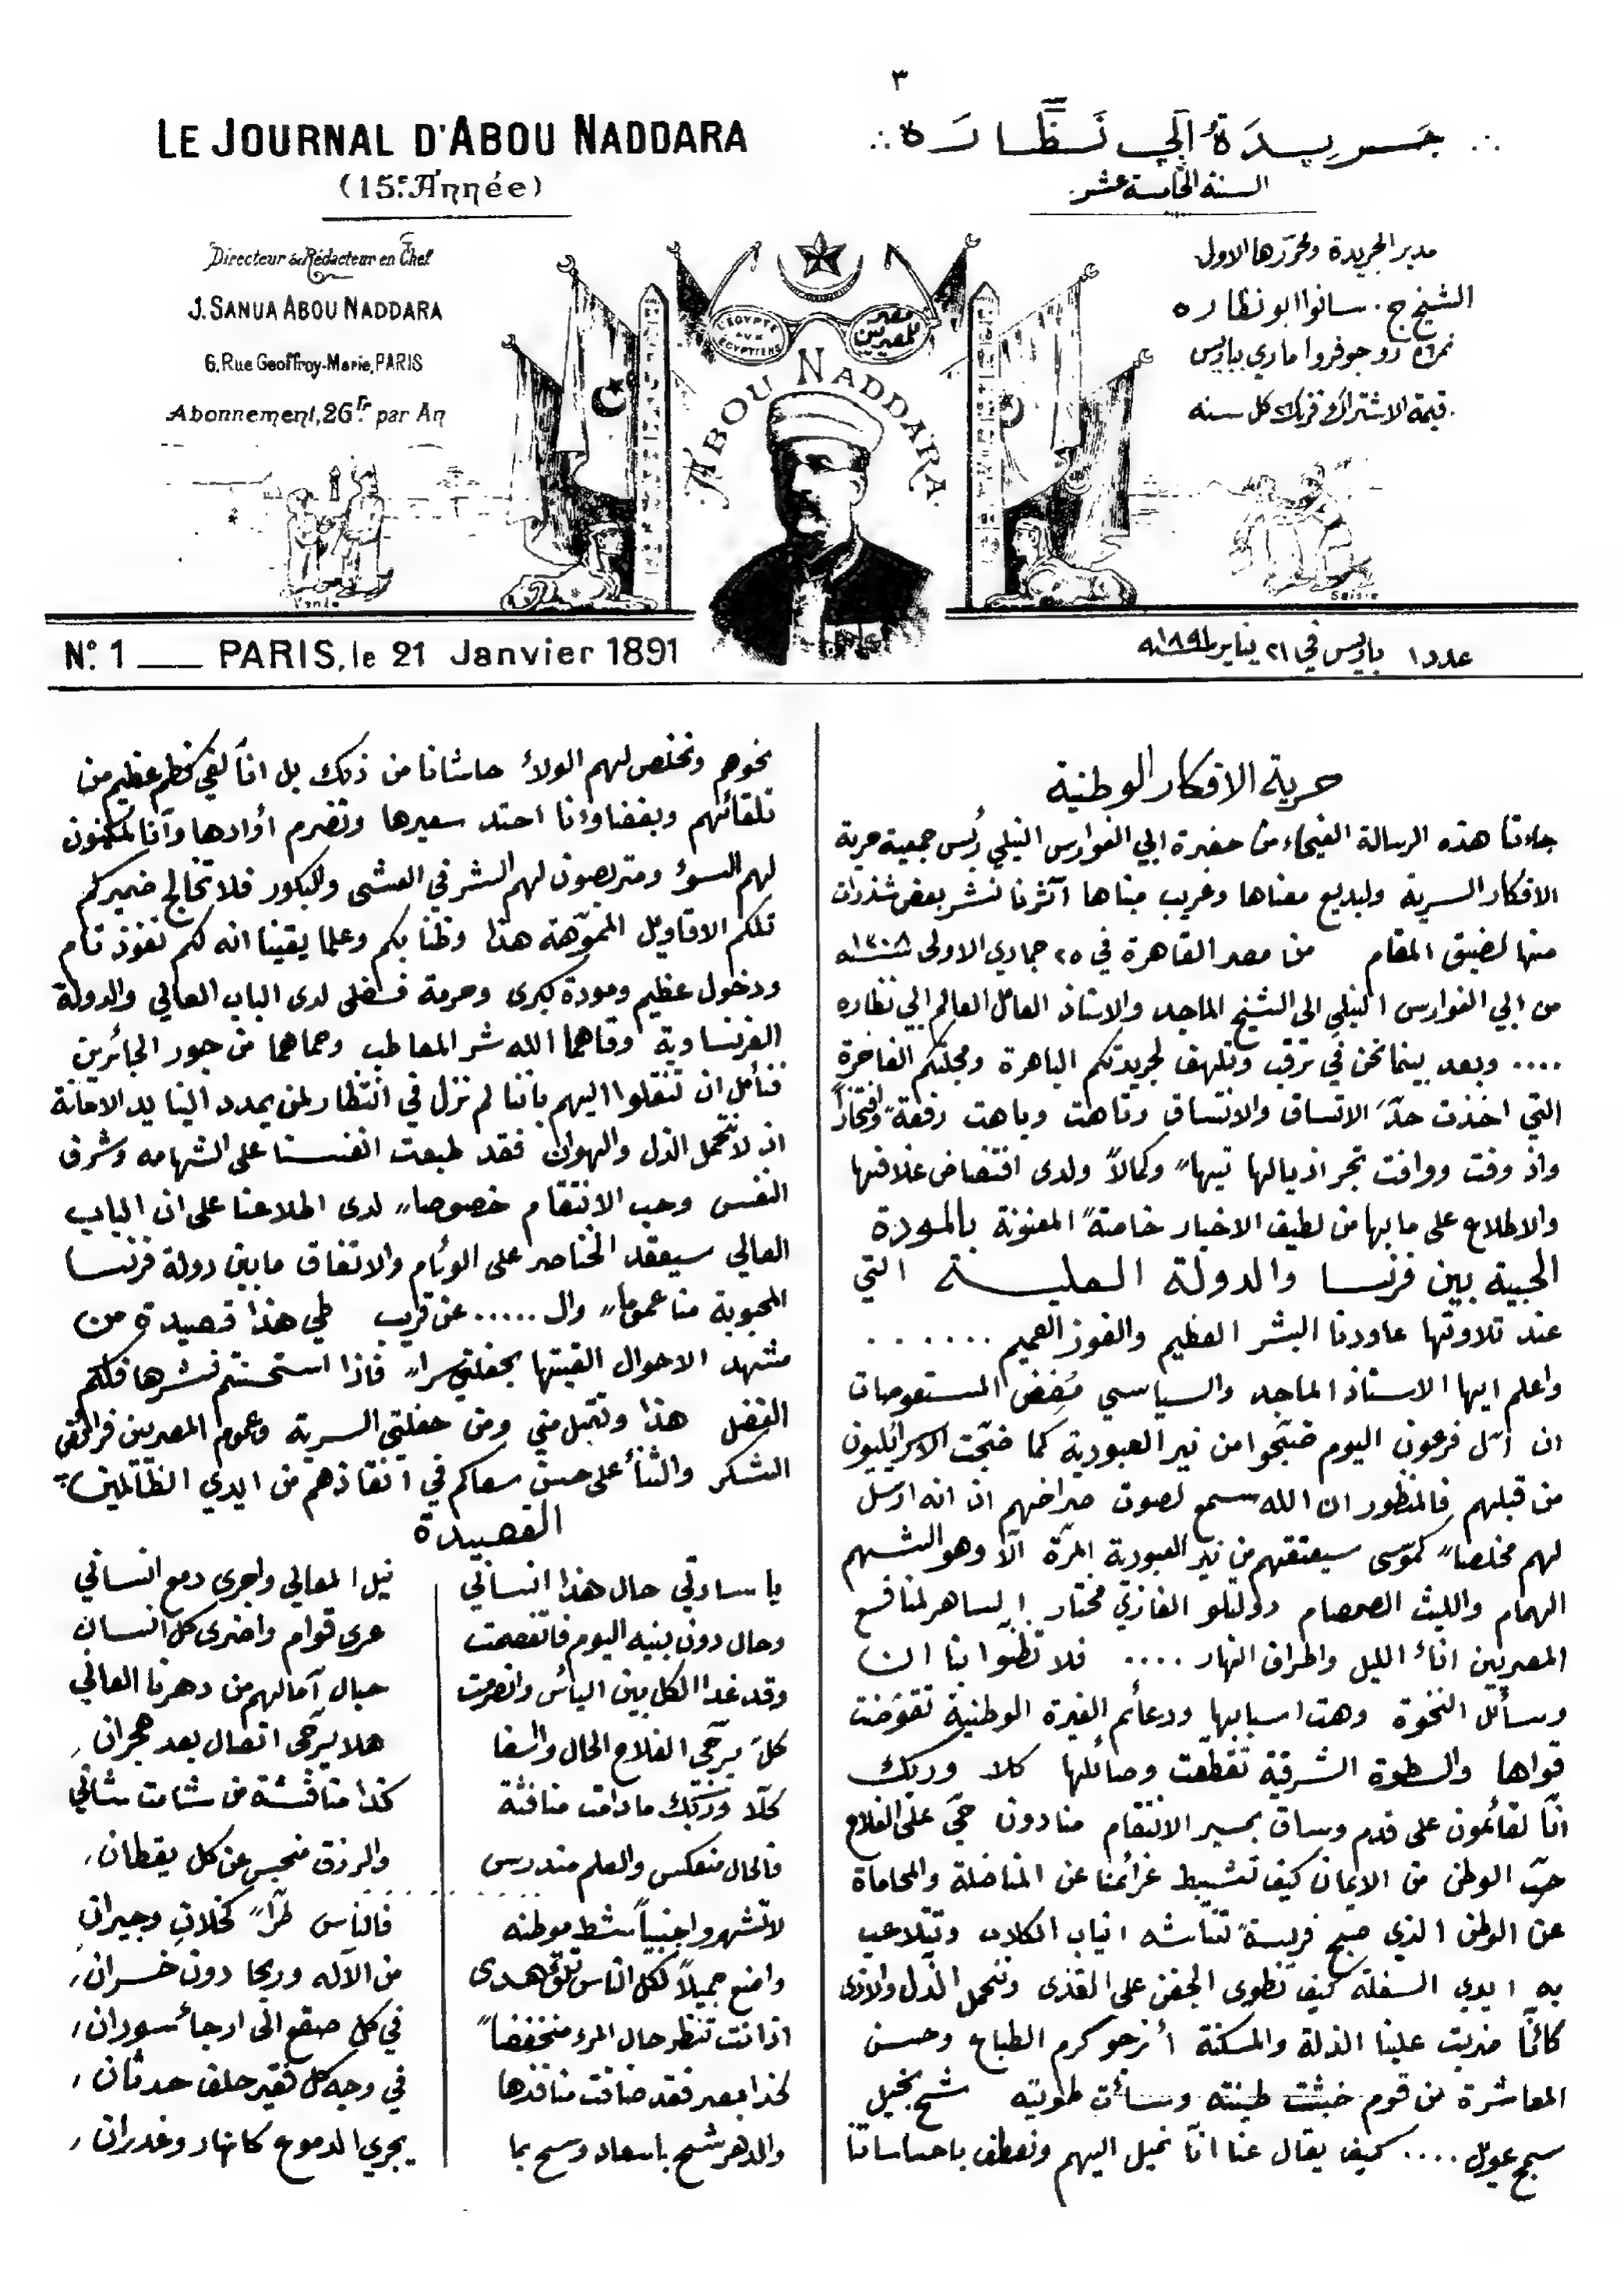 ٣
LE JOURNAL D'ABOU NADDARA
(15e. Année)
جَريدَةُ اَبي نَظَّارَة
السنة الخامسة عشر
Directeur & Rédacteur en Chef
J. SANUA ABOU NADDARA
6, Rue Geoffroy-Marie, PARIS
Abonnement, 26fr par An
مدير الجريدة ومحررها الاول
الشيخ ج. سانوا ابو نظاره
نمرة ٦ رو جوفروا ماري بباريس
قيمة الاشتراك فرنك كل سنه
L'EGYPTE AUX EGYPTIENS
مصر للمصريين
ABOU NADDARA
Vente
Saisie
No. 1 — PARIS, le 21 Janvier 1891
عدد ١ باريس في ٢١ يناير سنة ١٨٩١
حرية الافكار الوطنية
جاءتنا هذه الرسالة الفيحاء من حضرة ابي الفوارس النيلي رئيس جمعية حرية
الافكار السرية ولبديع معناها وغريب مبناها آثرنا نشر بعض شذرات
منها لضيق المقام من مصر القاهرة في ٢٥ جمادي الاولى سنة ١٣٠٨
من ابي الفوارس النيلي الى الشيخ الماجد والاستاذ العامل العالم ابي نظاره
.... وبعد بينما نحن في ترقب وتلهف لجريدتكم الباهرة ومجلتكم الفاخرة
التي اخذت حدّ الاتساق والانتساق وتاهت وباهت رفعة وافتخاراً
واذ وفت ووافت تجر اذيالها تيهاً وكمالاً ولدى افتضاض غلافها
والاطلاع على ما بها من لطيف الاخبار خاصة المعنونة بالمودة
الحبية بين فرنسا والدولة العلية التي
عند تلاوتها عاودنا البشر العظيم والفوز العميم ......
واعلم ايها الاستاذ الماجد والسياسي المستعوصات
ان آل فرعون اليوم ضجّوا من نير العبودية كما ضجّت الاسرائيليون
من قبلهم فالمنظور ان الله سمع لصوت صراخهم اذ انه ارسل
لهم مخلصاً كموسى سيعتقهم من نير العبودية المرة الا وهو الشهم
الهمام والليث الصمصام دولتلو الغازي مختار الساهر لمنافع
المصريين اناء الليل واطراف النهار .... فلا تظنوا بنا ان
وسائل النخوة وهت اسبابها ودعائم الغيرة الوطنية تقوضت
قواها والسطوة الشرقية تقطعت وصائلها كلا وربك
انّا لقائمون على قدم وساق بمسير الانتقام منادون حيّ على الفلاح
حب الوطن من الايمان كيف تثبيط عزائمنا عن المناضلة والمحاماة
عن الوطن الذي صبح فريسة تتناشه انياب الكلاب وتتلاعب
به ايدي السفلة كيف نطوى الجفن على القذى ونتحمل الذل والاذى
كانما ضربت علينا الذلة والمسكنة أنرجو كرم الطباع وحسن
المعاشرة من قوم خبثت طينته وساءت طويته شح بخيل
.... كيف يقال عنا انّا نميل اليهم ونعطف باحساساتنا
نحوهم ونخلص لهم الولاء حاشانا من ذلك بل انا لفي خطر عظيم من
تلقائهم وبغضاؤنا احتد سعيرها وتضرم أوارها وانا لمكمنون
لهم السوء ومتربصون لهم الشر في العشى والبكور فلا تخالج ضميركم
تلكم الاقاويل المموّهة هذا وظننا بكم وعلما يقينا انه لكم نفوذ تام
ودخول عظيم ومودة كبرى وحرمة فضلى لدى الباب العالي والدولة
الفرنساوية وقاهما الله شر المعاطب وحماهما من جور الجائرين
فنأمل ان تنقلوا اليهم باننا لم نزل في انتظار لمن يمدد الينا يد الاعانة
اذ لا نتحمل الذل والهوان فقد طبعت انفسنا على الشهامه وشرف
النفس وحب الانتقام خصوصاً لدى اطلاعنا على ان الباب
العالي سيعقد الخناصر على الوئام والاتفاق ما بين دولة فرنسا
المحبوبة منا عموماً وال ...... عن قريب طي هذا قصيدة من
مشهد الاحوال القيتها بحفلتي سراً فاذا استحسنتم نشرها فلكم
الفضل هذا وتقبل مني ومن حفلتي السرية وعموم المصريين فرائض
الشكر والثناء على حسن مسعاكم في انقاذهم من ايدي الظالمين
القصيدة
يا سادتي حال هذا انساني نيل المعالي واجرى دمع انساني
وحال دون بنيه اليوم فانفصمت عرى قوام واضرى كل انسان
وقد غدا الكل بين اليأس وانصرمت حبال آمالهم من دهرنا العاني
كلّ يرجّي الفلاح الحال واسفا هلا يرجّى اتصال بعد هجران
كلّا وربّك ما دامت منافثة كذا مناقشة من شامت شاني
فالحال منعكس والعلم مندرس والرزق منحبس عن كل يقظان
لا تشهروا اجنبياً شط موطنه فالناس طرّاً كخلان وجيران
واصنع جميلاً لكل الناس تلق هدى من الآله وربحا دون خسران
اذا نت تنظر حال المرء منخفضاً في كل صقع الى ارجاء سودان
كذا بمصر فقد ضاقت منافذها في وجه كل فقير حلف حدثان
والدهر شح باسعاد وسح بما يجري الدموع كانهار وغدران